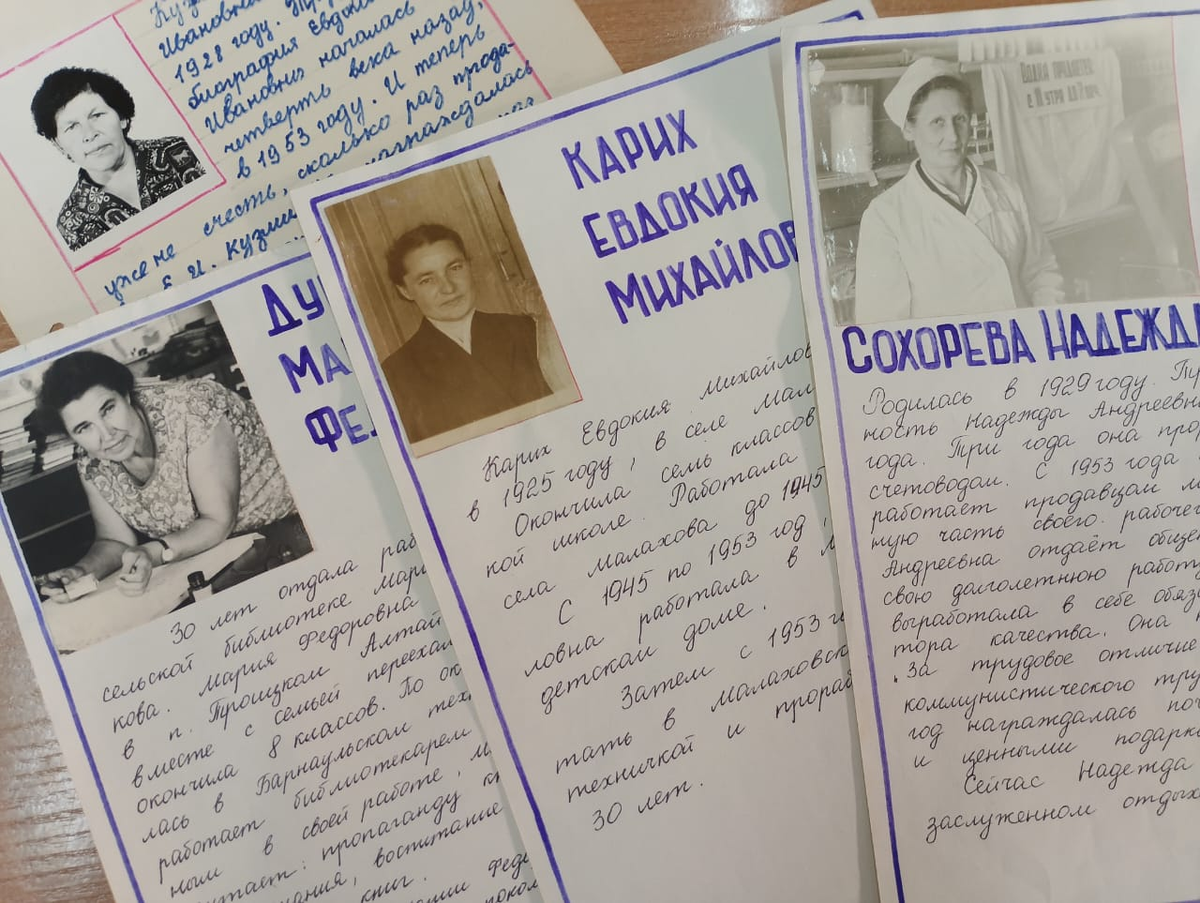 Ивановна
1928 году.
биография Евдокии
Ивановны началась
четверть века назад,
в 1953 году. И теперь
уже не счесть, сколько раз прода-
награждалась
Е. И. Кузми
Ду
Ма
Фе
30 лет отдала раб
сельской библиотеке Мари
кова. Мария Федоровна
в п. Троицком Алтай
вместе с семьей переехал
окончила 8 классов. По ок
лась в Барнаульском тех
работает библиотекарем
ным в своей работе, М
итает: пропаганду кн
ания, воспитание
книг.
Карих
Евдокия
Михайлов
Карих Евдокия Михайлов
в 1925 году, в селе Мал
Окончила семь классов
кой школе. Работала
села Малахова до 1945
С 1945 по 1953 год,
ловна работала в М
детском доме.
Затем с 1953 г
тать в Малаховск
техничкой и прораб
30 лет.
Водка продаётся
с 11 утра до 7 веч.
Сохорева Надежда
Родилась в 1929 году. Тру
ность Надежды Андреевн
года. Три года она про
счетоводом. С 1953 года
работает продавцом м
ную часть своего рабочег
Андреевна отдаёт общен
свою долголетнюю работу
выработала в себе обяз
тора качества. Она
За трудовое отличие
коммунистического тру
год награждалась поч
и ценными подарка
Сейчас Надежда
заслуженном отдых